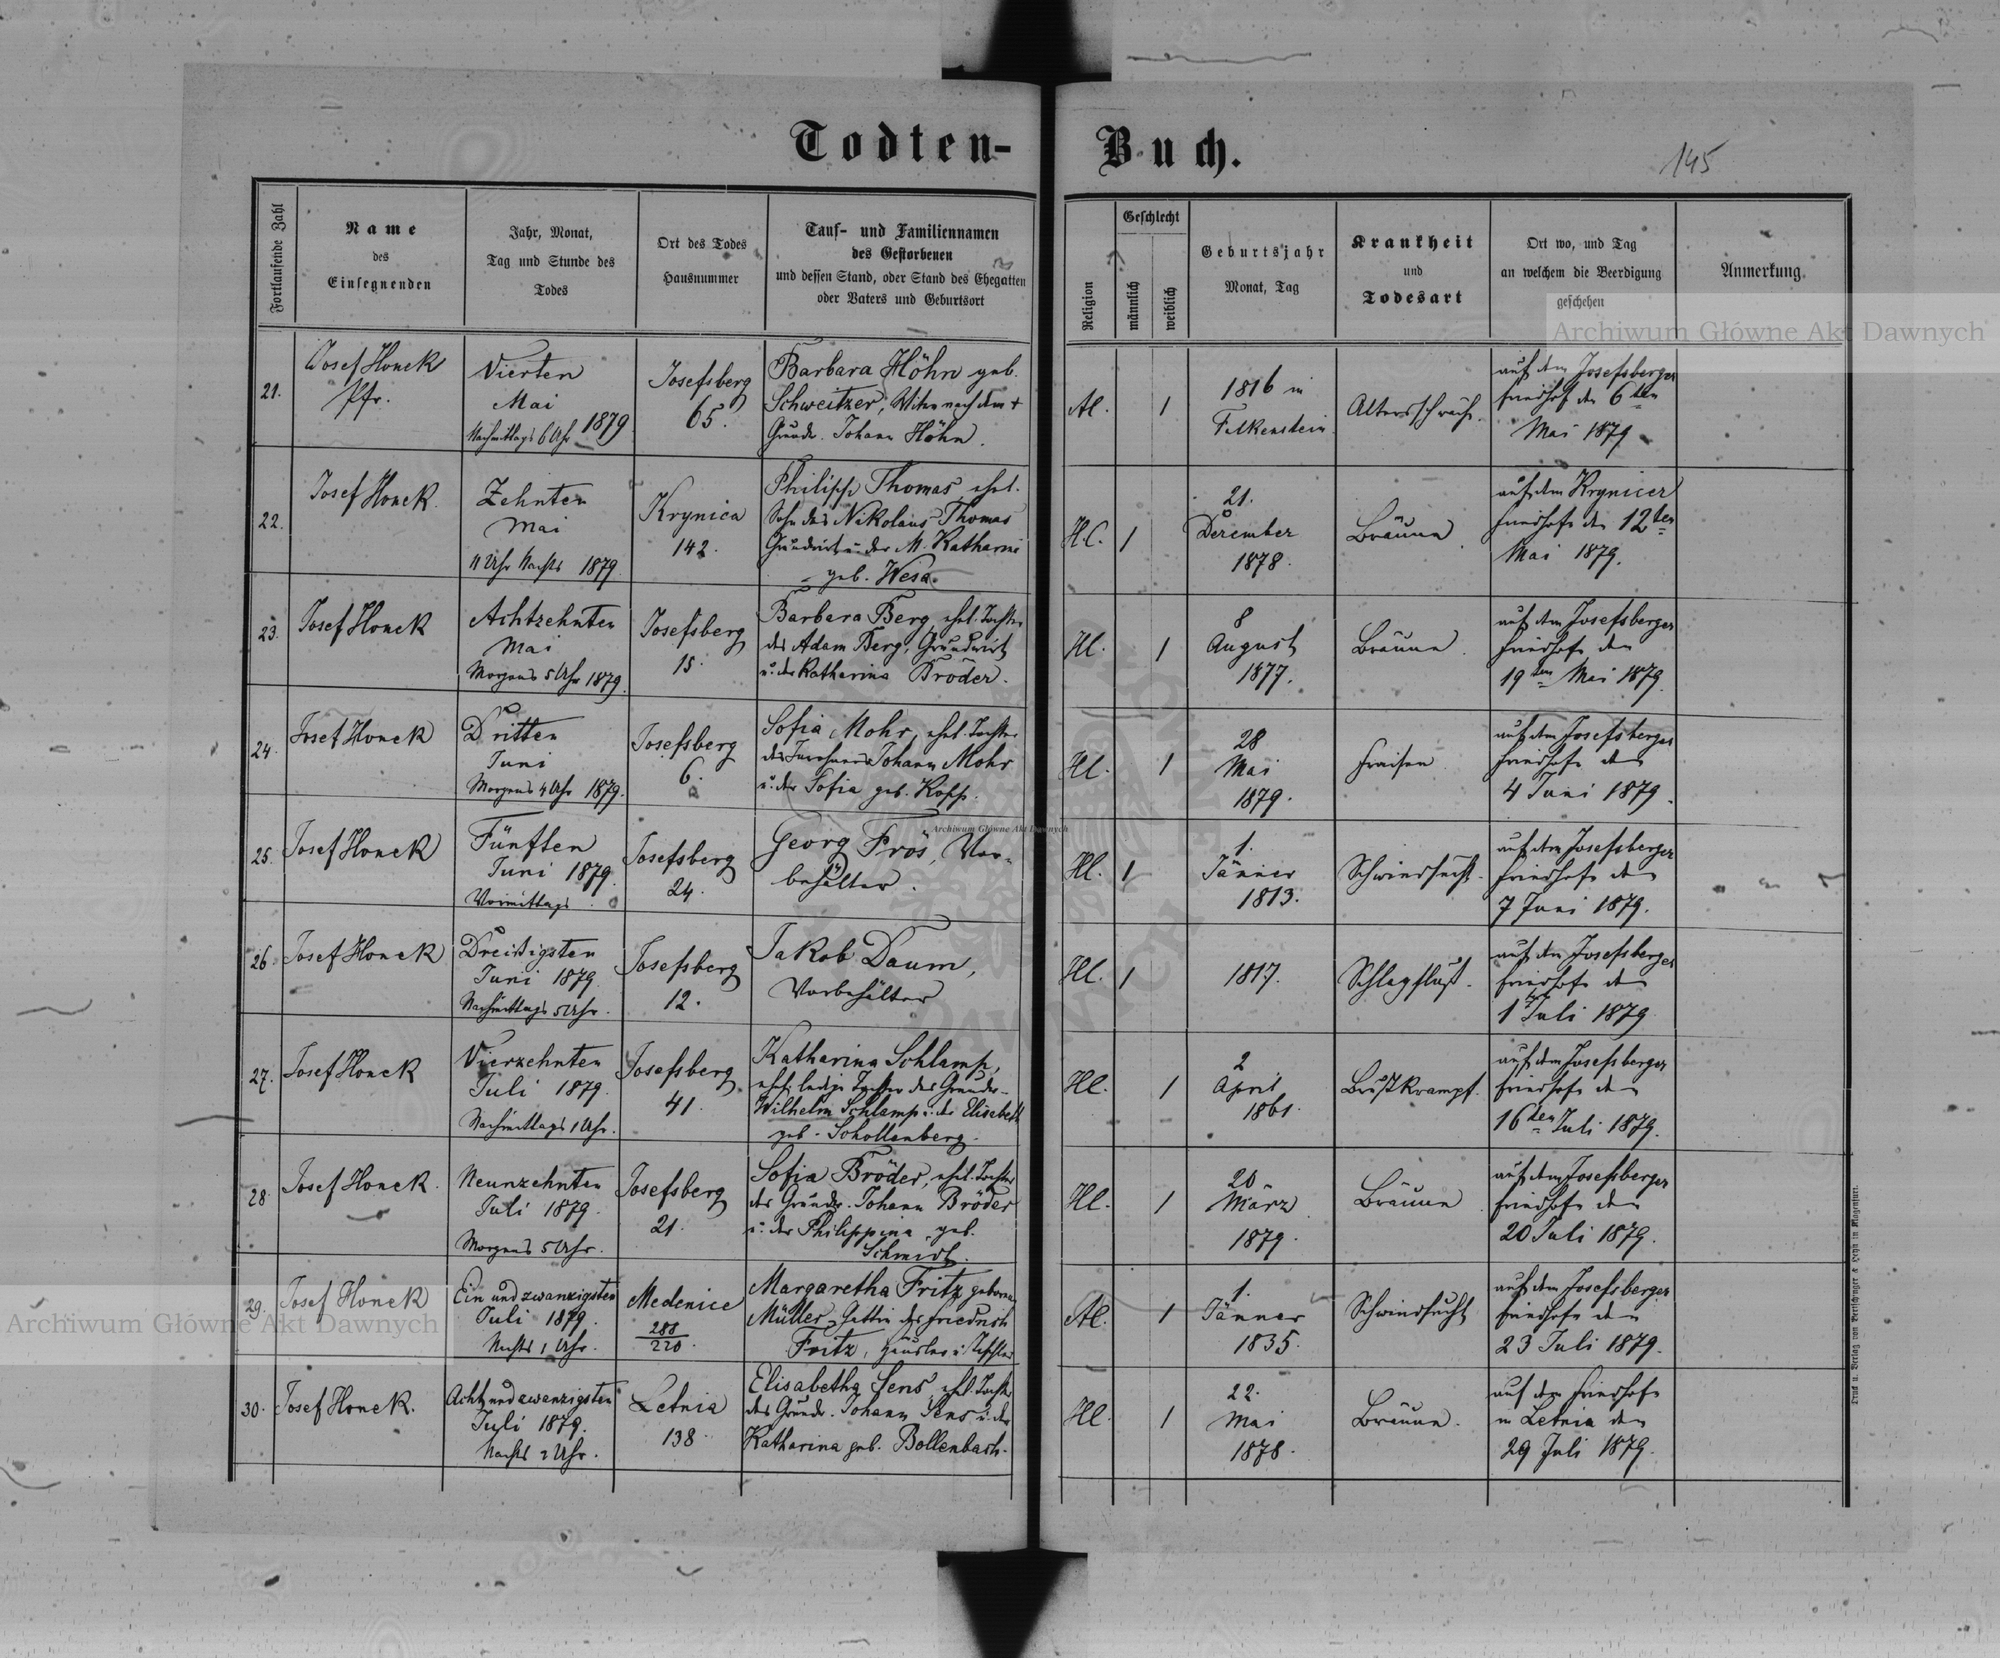 Todten-
Buch.
145
Fortlaufende Zahl
Name
des
Einsegnenden
Jahr, Monat,
Tag und Stunde des
Todes
Ort des Todes
Hausnummer
Tauf- und Familiennamen
des Gestorbenen
und dessen Stand, oder Stand des Ehegatten
oder Vaters und Geburtsort
Religion
Geschlecht
männlich
weiblich
Geburtsjahr
Monat, Tag
Krankheit
und
Todesart
Ort wo, und Tag
an welchem die Beerdigung
geschehen
Anmerkung.
21.
Josef Honek
Pfr.
Vierten
Mai
Nachmittags 6 Uhr 1879
Josefsberg
65.
Barbara Höhn geb.
Schweitzer, Witwe nach dem +
Grundw. Johann Höhn.
Al.
1
1816 in
Falkenstein
Altersschwäche.
auf dem Josefsberger
Friedhof den 6ten
Mai 1879
22.
Josef Honek.
Zehnten
Mai
11 Uhr Nachts 1879
Krynica
142.
Philipp Thomas, ehel.
Sohn des Nikolaus Thomas
Grundwirt u. der M. Katharina
geb. Wesa.
H.C.
1
21.
Dezember
1878.
Bräune.
auf dem Krynicer
Friedhofe den 12ten
Mai 1879.
23.
Josef Honek
Achtzehnten
Mai
Morgens 5 Uhr 1879.
Josefsberg
15.
Barbara Berg, ehel. Tochter
des Adam Berg, Grundwirt
u. der Katharina Bröder.
Hl.
1
8
August
1877.
Bräune.
auf dem Josefsberger
Friedhofe den
19ten Mai 1879.
24.
Josef Honek
Dritten
Juni
Morgens 4 Uhr 1879.
Josefsberg
6.
Sofia Mohr, ehel. Tochter
des Inwohners Johann Mohr
u. der Sofia geb. Kopp.
Hl.
1
28
Mai
1879.
Fraisen
auf dem Josefsberger
Friedhofe den
4 Juni 1879.
25.
Josef Honek
Fünften
Juni 1879.
Vormittags
Josefsberg
24.
Georg Frös, Vor-
behälter.
Hl.
1
1.
Jänner
1813.
Schwindsucht.
auf dem Josefsberger
Friedhofe den
7 Juni 1879.
26.
Josef Honek
Dreißigsten
Juni 1879
Nachmittags 5 Uhr.
Josefsberg
12.
Jakob Daum,
Vorbehälter
Hl.
1
1817.
Schlagfluß.
auf dem Josefsberger
Friedhofe den
1 Juli 1879
27.
Josef Honek
Vierzehnten
Juli 1879.
Nachmittags 1 Uhr.
Josefsberg
41.
Katharina Schlamp,
ehel. ledige Tochter des Grundw.
Wilhelm Schlamp u. der Elisabeth
geb. Schollenberg.
Hl.
1
2
April
1861.
Brustkrampf.
auf dem Josefsberger
Friedhofe den
16ten Juli 1879.
28.
Josef Honek.
Neunzehnten
Juli 1879.
Morgens 5 Uhr.
Josefsberg
21.
Sofia Bröder, ehel. Tochter
des Grundw. Johann Bröder
u. der Philippina geb.
Schmidt.
Hl.
1
20
März
1879.
Bräune.
auf dem Josefsberger
Friedhofe den
20 Juli 1879.
29.
Josef Honek
Ein und zwanzigsten
Juli 1879.
Nachts 1 Uhr.
Medenice
288
220
Margaretha Fritz geborene
Müller, Gattin des Friedrich
Fritz, Häusler u. Tischler
Al.
1
1.
Jänner
1835.
Schwindsucht
auf dem Josefsberger
Friedhofe den
23 Juli 1879.
30.
Josef Honek.
Acht und zwanzigsten
Juli 1879.
Nachts 2 Uhr.
Letnia
138.
Elisabetha Sens, ehel. Tochter
des Grundw. Johann Sens u. der
Katharina geb. Bollenbach.
Hl.
1
22.
Mai
1878.
Bräune.
auf dem Friedhofe
in Letnia den
29 Juli 1879.
Druck u. Verlag von Bertschinger & Heyn in Klagenfurt.
Archiwum Główne Akt Dawnych
Archiwum Główne Akt Dawnych
Archiwum Główne Akt Dawnych